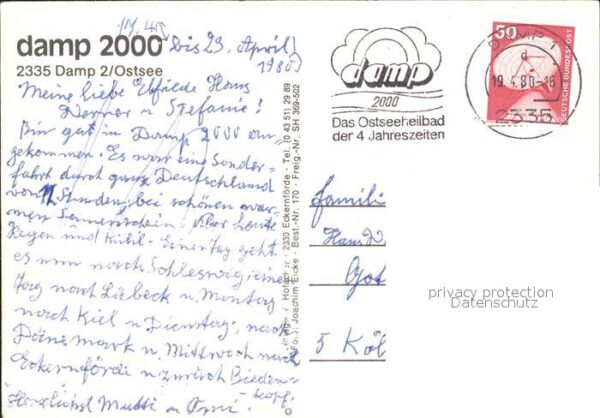 damp 2000
2335 Damp 2/Ostsee
bis 23. April
1980
Meine liebe Elfriede Hans
Werner u Stefanie!
Bin gut in Damp 2000 an-
gekommen. Es war eine Sonder-
fahrt durch ganz Deutschland
von 12 Stunden, bei schönen war-
men Sonnenschein. Aber heute
Regen und kühl. Einen Tag geht
es nun nach Schleswig einen
Tag nach Lübeck u. Montag
nach Kiel u Dienstag, nach
Dänemark u. Mittwoch nach
Eckernförde u zurück Bieden-
kopf.
Herzlichst Mutti u Omi
2330 Eckernförde - Tel. (0 43 51) 29 89
Foto: Joachim Eicke - Best.-Nr. 179 - Freig.-Nr. SH 369-502
damp
2000
Das Ostseeheilbad
der 4 Jahreszeiten
DAMP 1
d
2335
50
DEUTSCHE BUNDESPOST
Familie
Hans W
Got
5 Köl
privacy protection
Datenschutz